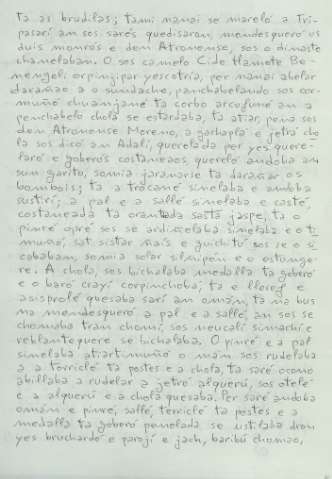 ta as brudilas; tami manai se mareló a Tri-
pasari an sos sarés quedisaron, mendesquero us
duis monrós e den Atronense, sos o dinaste
chanelaban. O sos camelo Cide Hamete Be-
nengeli orpinpar yescotria, per nanai abelar
darañao a o sundache, panchabelando sos cor-
muñó chuanjañe ta corbo arcofuné an a
penchabeló chola se estardaba, ta atiar, pena sos
den Atronense Moreno, a garhapla e jetró cho
la sos dicó an Adali, querelada per yes quere-
laró e goberós costanaos, quereló andoba an
sun garito, somia jaranarse ta darañar os
bambois; ta a trocane sinelaba e andoba
sustri; a pal e a salle sinelaba e casté,
costaneada ta orantada sasta jaspe, ta o
pinré opré sos se ardinelaba sinelaba e o ti
muñó, sat sistar ñais e guichitó sos se o si
cobaban, somia solar sinpén e o ostange-
re. A chola, sos bichalaba medalla ta geberó
e o baró crayí corpinchobá, ta e lloref e
asisprole quesaba sari an omán, ta na bus
ma mendesqueró a pal e a salle, an sos se
chomaba tran chomi, sos neucali simachi e
reblantequere se bichalaba. O pinré e a pal
sinelaba atiartimuño o mán sos rudelaba
a a terriclé ta postes e a chola, ta saré ocono
abillaba a rudelar a jetró alquerú, sos otelé
e a alquerú e a chola quesaba. Per saré andoba
omán e pinré, salle, terriclé ta postes e a
medalla ta geberó penelada se ustilaba dron
yes bruchardó e parojí e jach, baribú chomao,